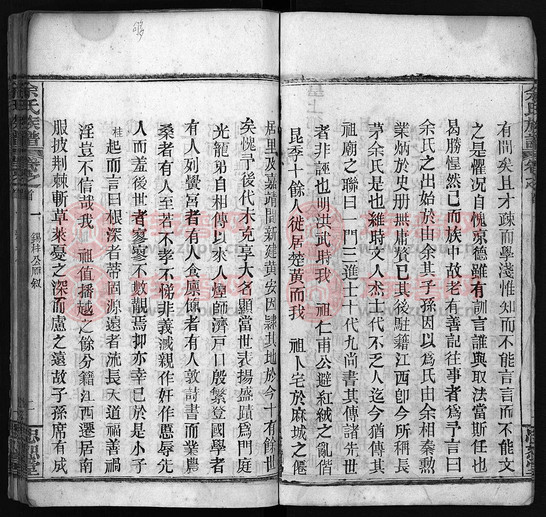 有間矣且才疎而學淺惟知而不能言言而不能文
之是懼况自愧凉德雖有訓言誰與取法當斯任也
曷勝惺然已而族中故老有善記往事者爲予言曰
余氏之出始於由余其子孫因以爲氏由余相秦勲
業炳於史册無庸贅已其後駐籍江西卽今所稱長
茅余氏是也維時文人杰士代不乏人迄今猶傳其
祖廟之聯曰一門三進士十代九尚書其傳諸先世
者非誣也明洪武時我 祖仁甫公避紅絨之亂偕
昆季十餘人徙居楚黄而我 祖卜宅於麻城之僊
居里及嘉靖間新建黄安因隷其地於今十有餘世
矣愧予後代未克享大名顯當世表揚盛蹟爲門庭
光寵弟自相傳以來人烟師濟戸口殷繁登國學者
有人列黌宮者有人食廩餼者有人敦詩書而業農
桑者有人求至若不孝不悌非義滅親作奸作慝辱先
人而羞後世者寥寥不數覯焉抑亦幸已於是小子
桂起而言曰根深者蒂固源遠者流長天道福善禍
淫豈不信哉我 祖值播越之餘分籍江西遷居南
服披荆棘斬草萊憂之深而慮之遠故子孫席有成
余氏族譜 卷之首 一 錫桂公原叙